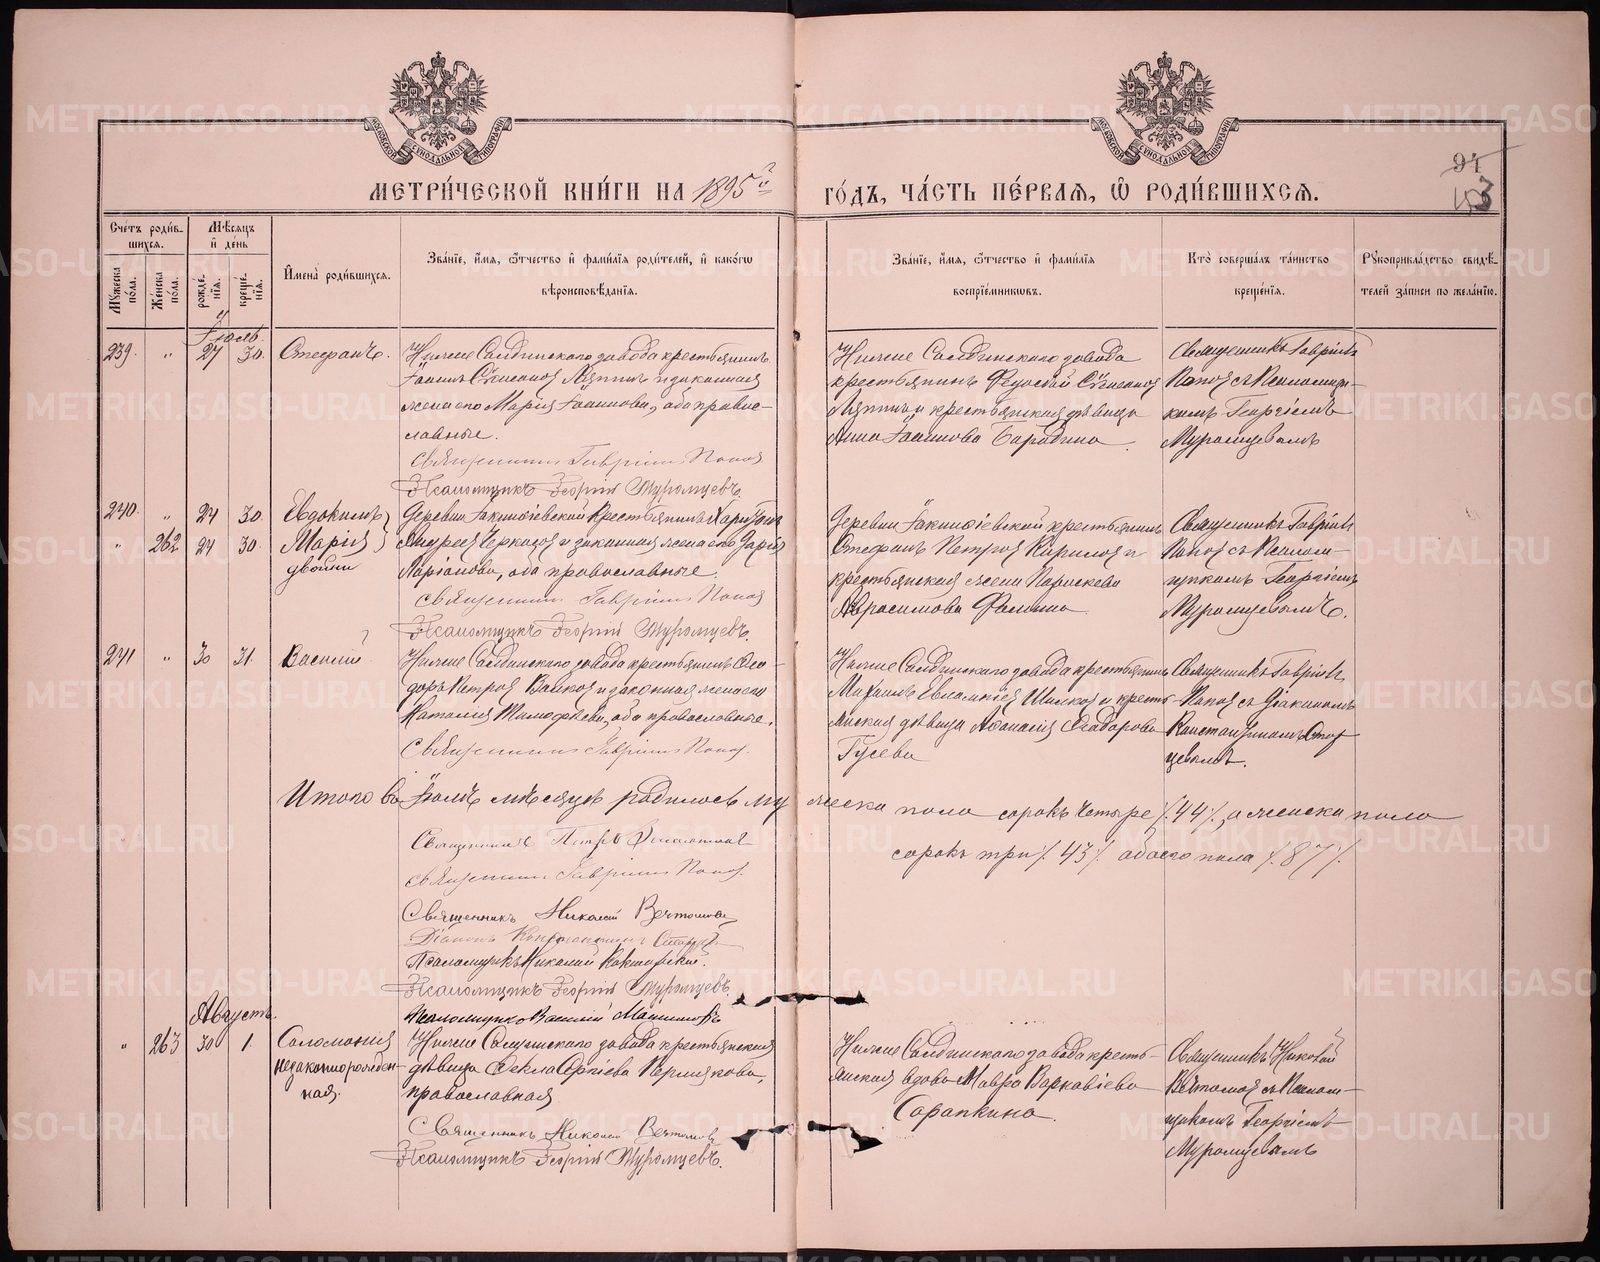 МЕТРИ́ЧЕСКОЙ КНИ́ГИ НА 1895й ГО́ДЪ, ЧА́СТЬ ПЕ́РВАЯ, Ѽ РОДИ́ВШИХСЯ.
94
Сче́тъ роди́в-
шихся.
Мѣсяцъ
и҆ де́нь
Му́жеска по́ла.
Же́нска по́ла.
рожде́нїя.
креще́нїя.
И҆мена̀ роди́вшихся.
Зва́нїе, и҆́мя, ѻ҆́тчество и҆ фами́лїя роди́телей, и҆ како́гѡ
вѣроисповѣ́данїя.
Зва́нїе, и҆́мя, ѻ҆́тчество и҆ фами́лїя
воспрїе́мниковъ.
Кто̀ соверша́лъ та́инство
креще́нїя.
Рꙋкоприкла́дство свидѣ́-
телей за́писи по жела́нїю.
Іюль.
239. " 27 30. Стефанъ.
Нижне Салдинскаго завода крестьянинъ
законная
жена его Марія Іоаннова, оба право-
славные.
Священникъ Гавріилъ Попов
Псаломщикъ Георгій Муромцевъ.
Нижне Салдинскаго завода
крестьянинъ Стефанов
и крестьянская дѣвица
Анна Іоаннова Бородина.
Священникъ Гавріилъ
Попов съ Псаломщи-
комъ Георгіемъ
Муромцевымъ
240. " 24 30. Евдокимъ
" 262 24 30. Марія
двойни
Деревни крестьянинъ Харитонъ
Андреев и законная жена его Дарья
оба православные.
Священникъ Гавріилъ Попов
Псаломщикъ Георгій Муромцевъ.
Деревни крестьянинъ
Стефанъ Петров Кирилов и
крестьянская жена Параскева
Аврасимова Фомина
Священникъ Гавріилъ
Попов съ Псалом-
щикомъ Георгіемъ
Муромцевымъ.
241 " 30 31. Василій
Нижне Салдинскаго завода крестьянинъ Ѳео-
доръ Петров Волков и законная жена его
Наталія Тимофѣева, оба православные.
Священникъ Гавріилъ Попов.
Нижне Салдинскаго завода крестьянинъ
Михаилъ и кресть-
янская дѣвица Аѳанасія Ѳеодорова
Гусева
Священникъ Гавріилъ
Попов съ Діакономъ
Константиномъ Стар-
цевымъ.
Итого во Іюлѣ мѣсяцѣ родилось мужеска пола сорокъ четыре /.44/., а женска пола
сорокъ три /.43/. обоего пола /.87/.
Священникъ Петръ
Священникъ Гавріилъ Попов.
Священникъ Николай Вечтомов
Діаконъ Константинъ
Псаломщикъ Николай
Псаломщикъ Георгій Муромцевъ.
Псаломщикъ Василій
Августъ.
" 263 30 1. Соломонія
незаконнорожден-
ная.
Нижне Салдинскаго завода крестьянская
дѣвица Ѳекла Сергіева Пермякова,
православная
Священникъ Николай Вечтомов
Псаломщикъ Георгій Муромцевъ.
Нижне Салдинскаго завода кресть-
янская вдова Мавра
Сорокина.
Священникъ Николай
Вечтомов съ Псалом-
щикомъ Георгіемъ
Муромцевымъ
METRIKI.GASO-URAL.RU